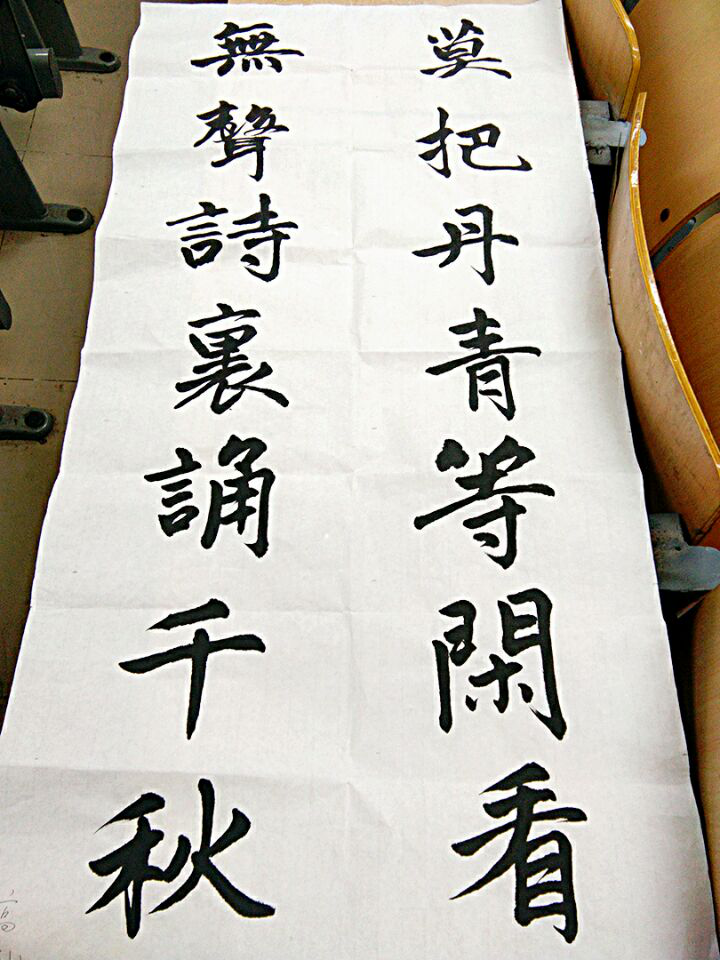 莫把丹青等閑看
無聲詩裏誦千秋